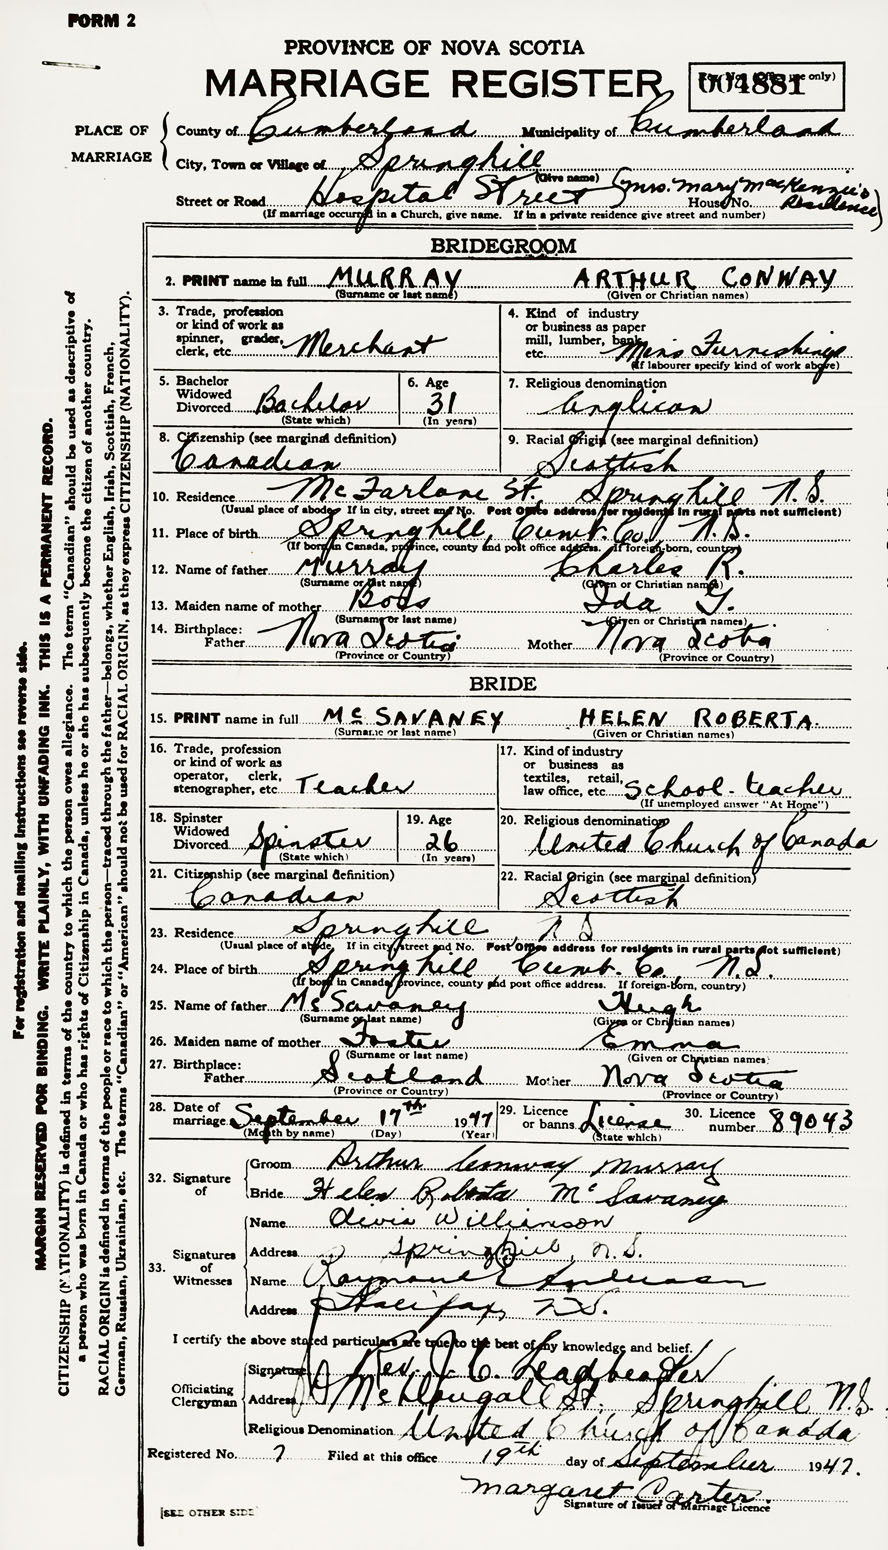 FORM 2
PROVINCE OF NOVA SCOTIA
MARRIAGE REGISTER
Reg. No. (Office use only)
004881
PLACE OF MARRIAGE
County of Cumberland Municipality of Cumberland
City, Town or Village of Springhill
(Give name)
Street or Road Hospital Street (Mrs. Mary MacKenzie's Residence) House No.
(If marriage occurred in a Church, give name. If in a private residence give street and number)
BRIDEGROOM
2. PRINT name in full MURRAY ARTHUR CONWAY
(Surname or last name) (Given or Christian names)
3. Trade, profession or kind of work as spinner, grader, clerk, etc. Merchant
4. Kind of industry or business as paper mill, lumber, bank, etc. Men's Furnishings
(If labourer specify kind of work above)
5. Bachelor Widowed Divorced Bachelor
(State which)
6. Age 31
(In years)
7. Religious denomination
Anglican
8. Citizenship (see marginal definition)
Canadian
9. Racial Origin (see marginal definition)
Scottish
10. Residence McFarlane St. Springhill N.S.
(Usual place of abode. If in city, street and No. Post Office address for residents in rural parts not sufficient)
11. Place of birth Springhill, Cumb. Co., N.S.
(If born in Canada, province, county and post office address. If foreign-born, country)
12. Name of father Murray Charles R.
(Surname or last name) (Given or Christian names)
13. Maiden name of mother Boss Ida G.
(Surname or last name) (Given or Christian names)
14. Birthplace: Father Nova Scotia Mother Nova Scotia
(Province or Country) (Province or Country)
BRIDE
15. PRINT name in full McSAVANEY HELEN ROBERTA.
(Surname or last name) (Given or Christian names)
16. Trade, profession or kind of work as operator, clerk, stenographer, etc. Teacher
17. Kind of industry or business as textiles, retail, law office, etc. School-teacher
(If unemployed answer "At Home")
18. Spinster Widowed Divorced Spinster
(State which)
19. Age 26
(In years)
20. Religious denomination
United Church of Canada
21. Citizenship (see marginal definition)
Canadian
22. Racial Origin (see marginal definition)
Scottish
23. Residence Springhill N S
(Usual place of abode. If in city, street and No. Post Office address for residents in rural parts not sufficient)
24. Place of birth Springhill, Cumb. Co., N.S.
(If born in Canada, province, county and post office address. If foreign-born, country)
25. Name of father McSavaney Hugh
(Surname or last name) (Given or Christian names)
26. Maiden name of mother Foster Emma
(Surname or last name) (Given or Christian names)
27. Birthplace: Father Scotland Mother Nova Scotia
(Province or Country) (Province or Country)
28. Date of marriage September 17th 1947
(Month by name) (Day) (Year)
29. Licence or banns License
(State which)
30. Licence number 89043
32. Signature of
Groom Arthur Conway Murray
Bride Helen Roberta McSavaney
33. Signatures of Witnesses
Name Olivia Williamson
Address Springhill, N.S.
Name Raymond E Anderson
Address Halifax, N.S.
I certify the above stated particulars are true to the best of my knowledge and belief.
Officiating Clergyman
Signature Rev. J. C. Leadbeater
Address McDougall St. Springhill N.S.
Religious Denomination United Church of Canada
Registered No. 7 Filed at this office 19th day of September 1947.
Margaret Carter.
Signature of Issuer of Marriage Licence
[SEE OTHER SIDE]
For registration and mailing instructions see reverse side.
MARGIN RESERVED FOR BINDING. WRITE PLAINLY, WITH UNFADING INK. THIS IS A PERMANENT RECORD.
CITIZENSHIP (NATIONALITY) is defined in terms of the country to which the person owes allegiance. The term "Canadian" should be used as descriptive of
a person who was born in Canada or who has rights of Citizenship in Canada, unless he or she has subsequently become the citizen of another country.
RACIAL ORIGIN is defined in terms of the people or race to which the person—traced through the father—belongs, whether English, Irish, Scottish, French,
German, Russian, Ukrainian, etc. The terms "Canadian" or "American" should not be used for RACIAL ORIGIN, as they express CITIZENSHIP (NATIONALITY).